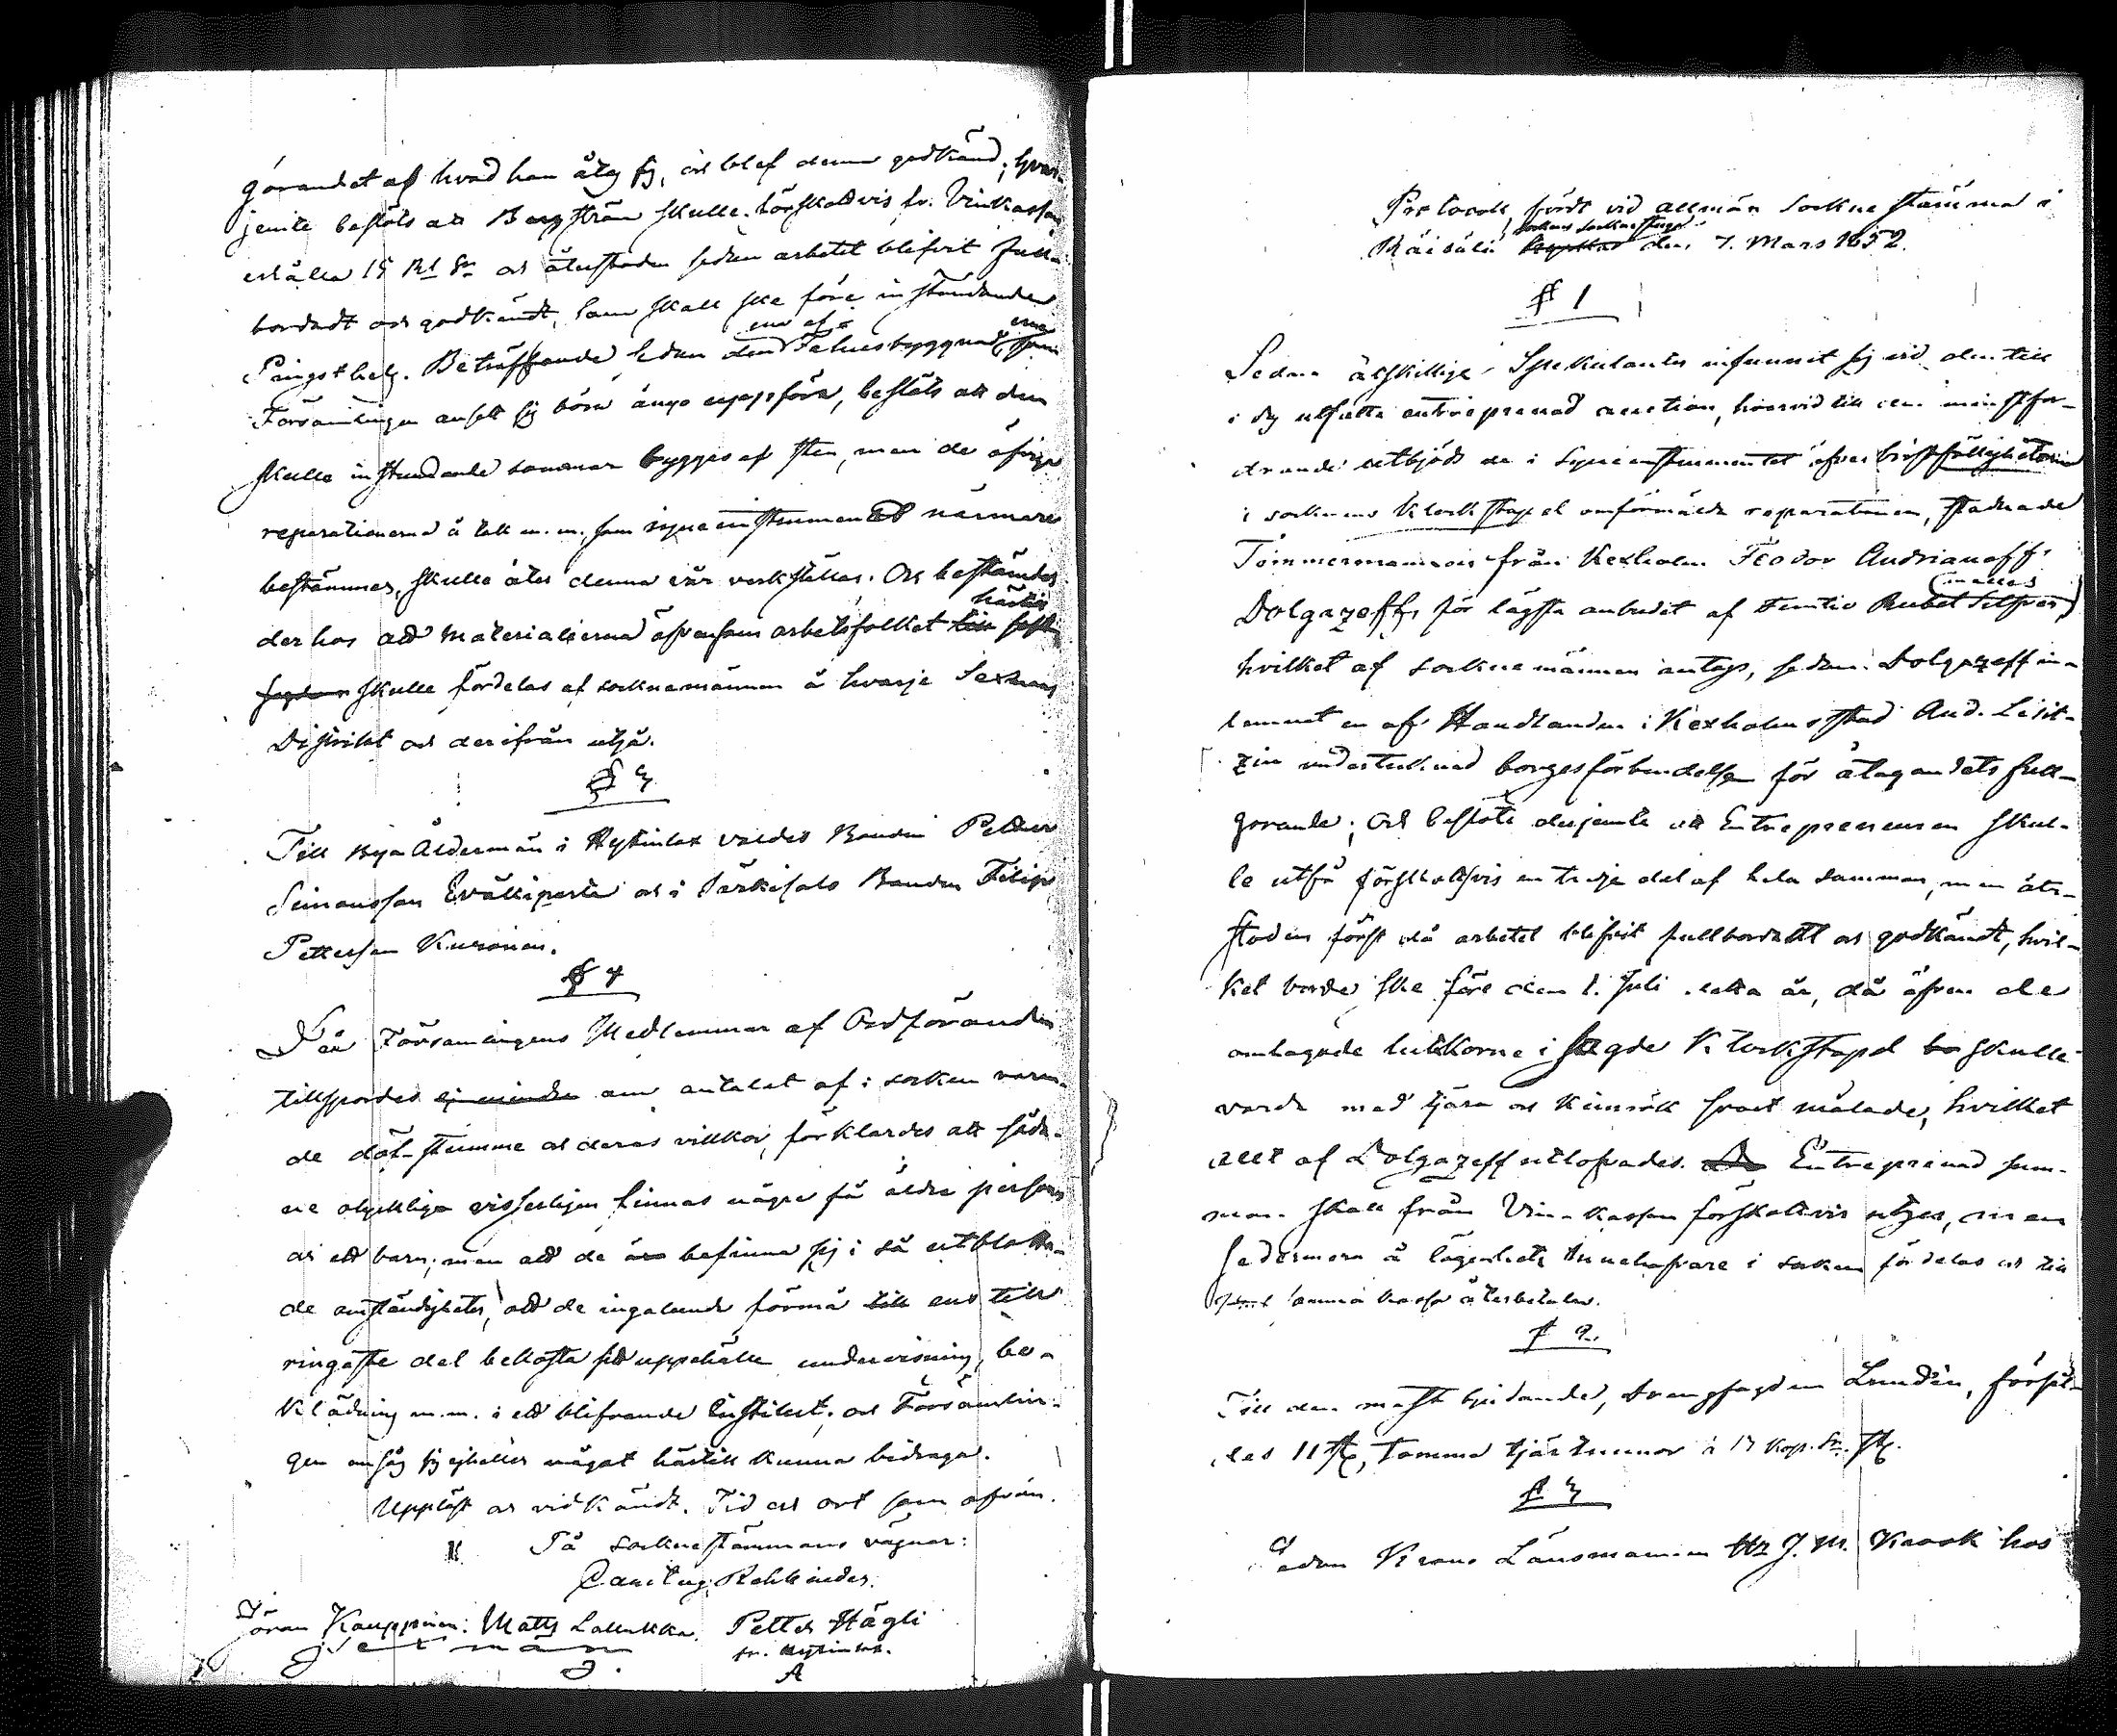 görandet af hvad han åtog sig, och blef denna godkänd; hvar-
jemte beslöts att Bergström skulle förskottvis fr. Vinkassan
erhålla 15 Rbl Sr och återstoden sedan arbetet blifvit full-
bordadt och godkändt, som skall ske före instundande
Pingsthelg. Beträffande sedan den en af Fähusbyggnaderna som
Församlingen ansett sig böra ånyo uppföra, beslöts att den
skulle instundande sommar bygges af sten, men de öfriga
reparationerna å tak m.m. som syneinstrumentet närmare
bestämmer, skulle åter denna vår verkställas. Och bestämdes
derhos att materialierna äfvensom arbetsfolket härtill
skulle fördelas af socknemännen å hvarje Sexmans
Distrikt och derifrån utgå.
§ 3
Till Byа Ålderman i Hytinlax valdes Bonden Petter
Simonsson Evälliperä och i Särkisalo Bonden Filip
Pettersson Kuronen.
§ 4
Då Församlingens Medlemmar af Ordföranden
tillspordes ej mindre om antalet af i socken varan-
de döf-stumme och deras villkor, förklarades att såda-
ne olyckliga visserligen finnas några få äldre personer
och ett barn; men att de äro befinna sig i så utblotta-
de omständigheter, att de ingalunda förmå till ens till
ringaste del bekosta sitt uppehälle undervisning, be-
klädning m.m. i ett blifvande Institut; och Församlin-
gen ansåg sig ejheller något härtill kunna bidraga.
Uppläst och vidkändt. Tid och ort som ofvan.
På socknestämmans vägnar:
Rehbinder.
Jöran Kauppinen. Matts Lallukka. Petter Hägli
fr. Hytinlax.
Protocoll, fördt vid allmän socknestämma i
Räisälä sockens sockenstuga den 7. Mars 1852.
§ 1
Sedan åtskillige Spekulanter infunnit sig vid den till
i dag utsatta entreprenad auction, hvarvid till den minstfor-
drande utbjöds de i Syneinstrumentet öfver bristfälligheterne
i sockens Klockstapel omförmälda reparationen, stadnade
Timmermannen från Kexholm Feodor Andrianoff
Dolgazeff, för lägsta anbudet af Femtio Rubel Silfver,
hvilket af socknemännen antogs, sedan Dolgazeff in-
lemnat en af Handlanden i Kexholms stad And. Lisit-
zin undertecknad borgesförbindelse för åtagandets full-
görande; Och beslöts derjemte att Entrepreneuren skul-
le utfå förskottsvis en tredje del af hela summan, men åter-
stoden först då arbetet blifvit fullbordadt och godkändt, hvil-
ket borde ske före den 1. Juli detta år, då äfven de
omlagade luckorne i sagde Klockstapel skulle
varda med tjära och kimrök svart målade, hvilket
allt af Dolgazeff utlofvades. Entreprenad sum-
man skall från Vin-kassan förskottvis utges, men
sedermera å lägenhets Innehafvare i socken fördelas och till
samma kassa återbetalas.
§ 2.
Till den mest bjudande, Lundin, försål-
des 11 st, tomma tjärtunnor à 17 kop. Sr. st.
§ 3
Sedan Krono Länsmannen Hr J. M. Krook hos